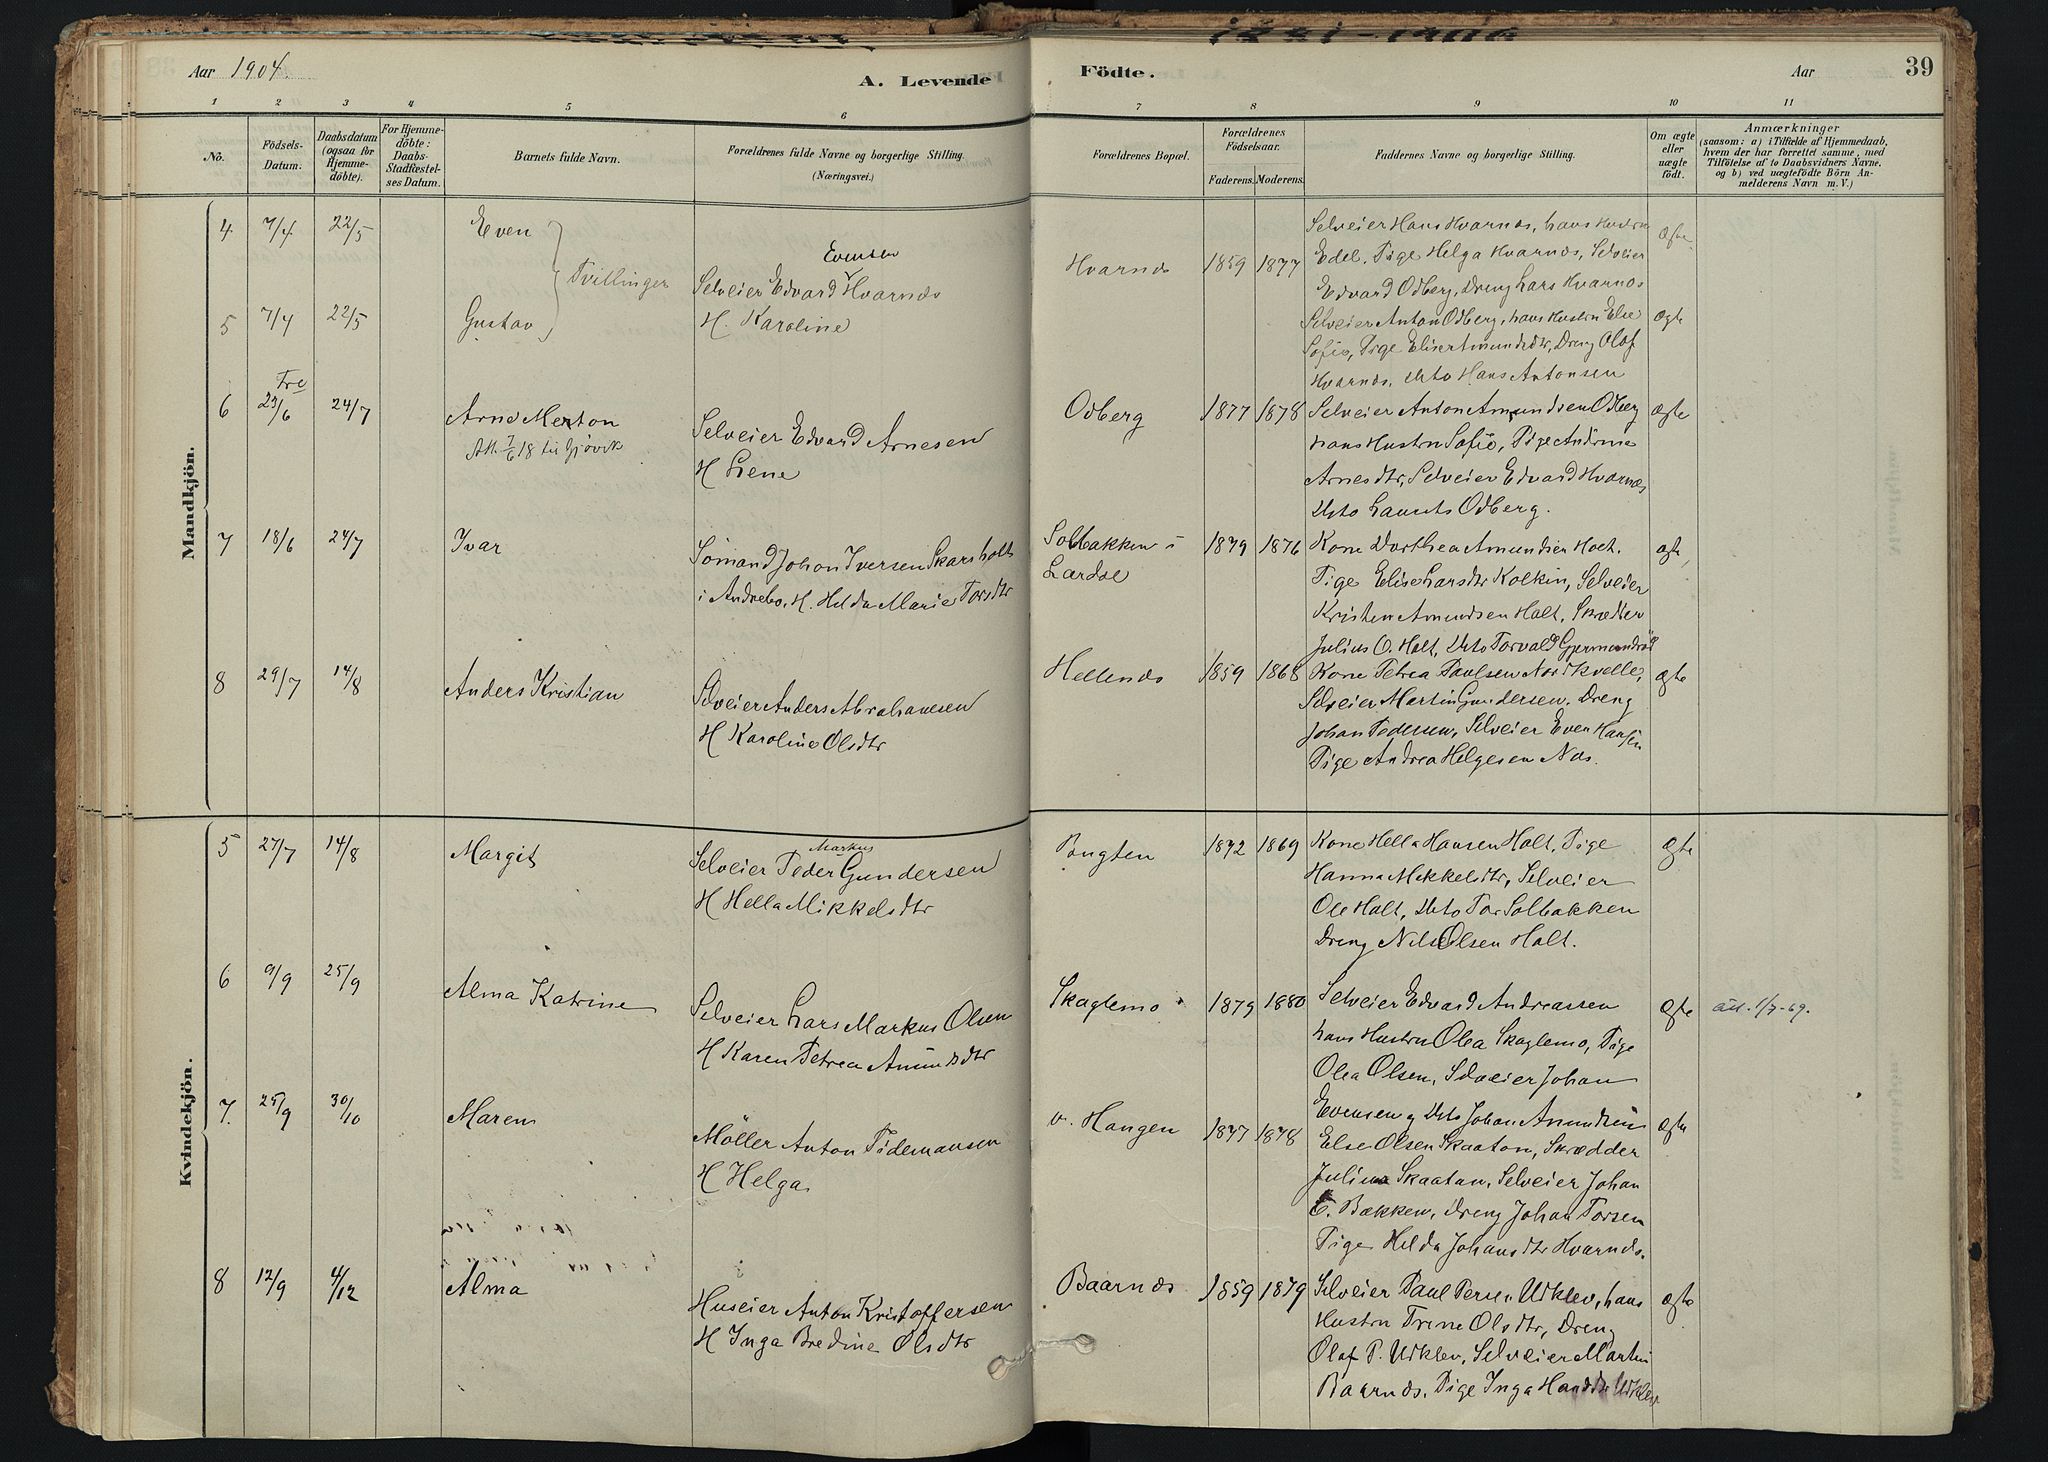 Aar 1904.
A. Levende
Födte.
Aar
39
1 2 3 4 5 6 7 8 9 10 11
No.
Födsels-
Datum.
Daabsdatum
(ogsaa for
Hjemme-
döbte).
For Hjemme-
döbte:
Daabs-
Stadfæstel-
ses Datum.
Barnets fulde Navn.
Forældrenes fulde Navne og borgerlige Stilling.
(Næringsvei.)
Forældrenes Bopæl.
Forældrenes
Födselsaar.
Faderens. Moderens.
Faddernes Navne og borgerlige Stilling.
Om ægte
eller
uægte
födt.
Anmærkninger
(saasom: a) i Tilfælde af Hjemmedaab,
hvem der har forrettet samme, med
Tilföielse af to Daabsvidners Navne,
og b) ved uægtefödte Börn An-
melderens Navn m. V.)
Mandkjön.
4 7/4 22/5 Even
Tvillinger
Evensen
Selveier Edvard Hvarnæs
H. Karoline
Hvarnæs 1859 1877
Selveier Hans Hvarnæs, hans Hustru
Edel. Pige Helga Hvarnæs, Selveier
Edvard Odberg, Dreng Lars Hvarnæs
Ægte
5 7/4 22/5 Gustav
Selveier Anton Odberg, hans Hustru Else
Sofie, Pige Elise Amundsdtr, Dreng Olaf
Hvarnæs, Dito Hans Antonsen
Ægte
6 23/6 24/7 Arne Merton
Att. 7/6 18 til Gjøvik
Selveier Edvard Arnesen
H Lene
Odberg 1877 1878
Selveier Anton Amundsen Odberg
hans Hustru Sofie, Pige Andrine
Arnesdtr, Selveier Edvard Hvarnæs
Dito Laurits Odberg.
Ægte
7 18/6 24/7 Ivar
Sömand Johan Iversen Skarsholt
i Andebo. H. Helda Marie Torsdtr
Solbakken i
Lardal
1879 1876
Kone Dorthea Amundsen Holt.
Pige Elise Larsdtr Kolkin, Selveier
Kristen Amundsen Holt, Skrædder
Julius O. Holt, Dito Torvald Gjermundrød
Ægte
8 29/7 14/8 Anders Kristian
Selveier Anders Abrahamsen
H Karoline Olsdtr
Hellenæs 1859 1868
Kone Petrea Paulsen Nordkvelle,
Selveier Martin Gundersen, Dreng
Johan Pedersen, Selveier Even Hansen
Pige Andrea Helgesen Næs.
Ægte
Kvindekjön.
5 27/7 14/8 Margit
Markus
Selveier Peder Gundersen
H Hella Mikkelsdtr
Bugten 1872 1869
Kone Hella Hansen Holt, Pige
Hanna Mikkelsdtr, Selveier
Ole Holt, Dito Tor Solbakken
Dreng Nils Olsen Holt.
Ægte
6 9/9 25/9 Alma Katrine
Selveier Lars Markus Olsen
H Karen Petrea Amundsdtr
Skaglemo 1879 1880
Selveier Edvard Andreassen
hans Hustru Olea Skaglemo, Pige
Olea Olsen, Selveier Johan
Evensen og Dito Johan Amundsen
Ægte
att. 1/7-69.
7. 25/9 30/10 Maren
Möller Anton Tidemansen
H Helga
v. Haugen 1877 1878
Else Olsen Skaatan, Skrædder
Julius Skaatan, Selveier Johan
E. Bakken, Dreng Johan Torsen
Pige Helda Johansdtr Hvarnæs.
Ægte
8 12/9 4/12 Alma
Huseier Anton Kristoffersen
H Inga Bredine Olsdtr
Baarnæs 1859 1879
Selveier Paul Persen Udklev, hans
Hustru Trine Olsdtr, Dreng
Olaf P. Udklev, Selveier Martin
Baarnæs, Pige Inga Udklev
Ægte